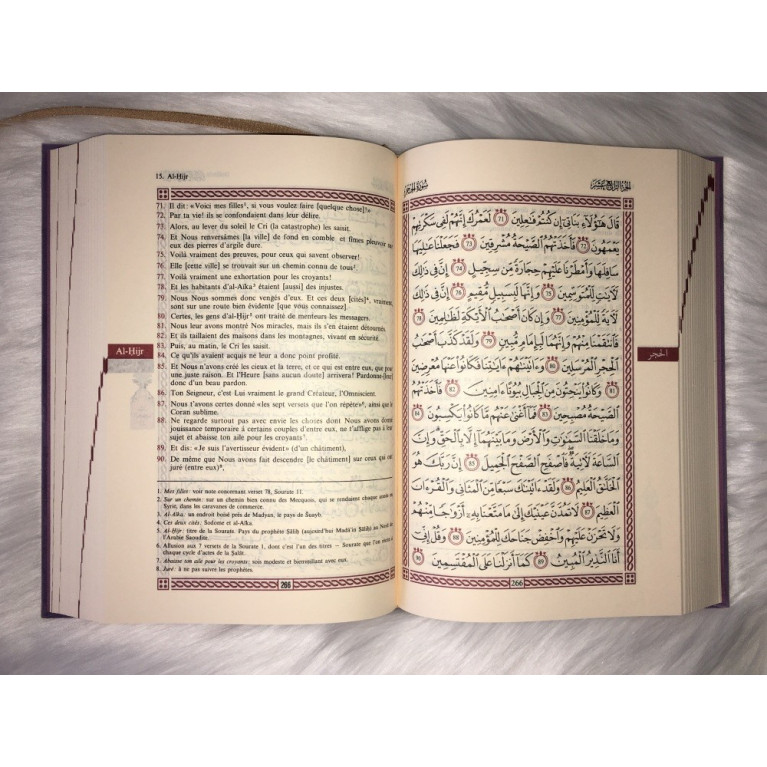 15. Al-Hijr
71. Il dit: «Voici mes filles¹, si vous voulez faire [quelque chose]!»
72. Par ta vie! ils se confondaient dans leur délire.
73. Alors, au lever du soleil le Cri (la catastrophe) les saisit.
74. Et Nous renversâmes [la ville] de fond en comble et fîmes pleuvoir sur
eux des pierres d'argile dure.
75. Voilà vraiment des preuves, pour ceux qui savent observer!
76. Elle [cette ville] se trouvait sur un chemin connu de tous².
77. Voilà vraiment une exhortation pour les croyants!
78. Et les habitants d'al-Aïka³ étaient [aussi] des injustes.
79. Nous Nous sommes donc vengés d'eux. Et ces deux [cités]⁴, vraiment,
sont sur une route bien évidente [que vous connaissez].
80. Certes, les gens d'al-Hijr⁵ ont traité de menteurs les messagers.
81. Nous leur avons montré Nos miracles, mais ils s'en étaient détournés.
82. Et ils taillaient des maisons dans les montagnes, vivant en sécurité.
83. Puis, au matin, le Cri les saisit.
84. Ce qu'ils avaient acquis ne leur a donc point profité.
85. Et Nous n'avons créé les cieux et la terre, et ce qui est entre eux, que pour
une juste raison. Et l'Heure [sans aucun doute] arrivera! Pardonne-[leur]
donc d'un beau pardon.
86. Ton Seigneur, c'est Lui vraiment le grand Créateur, l'Omniscient.
87. Nous t'avons certes donné «les sept versets que l'on répète»⁶, ainsi que le
Coran sublime.
88. Ne regarde surtout pas avec envie les choses dont Nous avons donné
jouissance temporaire à certains couples d'entre eux, ne t'afflige pas à leur
sujet et abaisse ton aile pour les croyants⁷.
89. Et dis: «Je suis l'avertisseur évident» (d'un châtiment),
90. De même que Nous avons fait descendre [le châtiment] sur ceux qui ont
juré (entre eux)⁸,
Al-Hijr
1. Mes filles: voir note concernant verset 78, Sourate 11.
2. Sur un chemin: sur un chemin bien connu des Mecquois, qui se rendaient chaque année en
Syrie, dans les caravanes de commerce.
3. Al-Aïka: un endroit boisé près de Madyan, le pays de Šuayb.
4. Ces deux cités: Sodome et al-Aïka.
5. Al-Hijr: titre de la Sourate. Pays du prophète Sâlih (aujourd'hui Madâ'in Sâlih) au Nord de
l'Arabie Saoudite.
6. Allusion aux 7 versets de la Sourate 1, dont c'est l'un des titres — Sourate que l'on récite à
chaque cycle d'actes de la Salât.
7. Abaisse ton aile pour les croyants: sois modeste et bienveillant avec eux.
8. Juré: à ne pas suivre les prophètes.
266
سورة الحجر
الجزء الرابع عشر
قَالَ هَٰٓؤُلَآءِ بَنَاتِيٓ إِن كُنتُمْ فَٰعِلِينَ ٧١ لَعَمْرُكَ إِنَّهُمْ لَفِي سَكْرَتِهِمْ
يَعْمَهُونَ ٧٢ فَأَخَذَتْهُمُ ٱلصَّيْحَةُ مُشْرِقِينَ ٧٣ فَجَعَلْنَا عَٰلِيَهَا
سَافِلَهَا وَأَمْطَرْنَا عَلَيْهِمْ حِجَارَةً مِّن سِجِّيلٍ ٧٤ إِنَّ فِي ذَٰلِكَ
لَءَايَٰتٍ لِّلْمُتَوَسِّمِينَ ٧٥ وَإِنَّهَا لَبِسَبِيلٍ مُّقِيمٍ ٧٦ إِنَّ فِي ذَٰلِكَ
لَءَايَةً لِّلْمُؤْمِنِينَ ٧٧ وَإِن كَانَ أَصْحَٰبُ ٱلْأَيْكَةِ لَظَٰلِمِينَ ٧٨
فَٱنتَقَمْنَا مِنْهُمْ وَإِنَّهُمَا لَبِإِمَامٍ مُّبِينٍ ٧٩ وَلَقَدْ كَذَّبَ أَصْحَٰبُ
ٱلْحِجْرِ ٱلْمُرْسَلِينَ ٨٠ وَءَاتَيْنَٰهُمْ ءَايَٰتِنَا فَكَانُوا۟ عَنْهَا مُعْرِضِينَ
٨١ وَكَانُوا۟ يَنْحِتُونَ مِنَ ٱلْجِبَالِ بُيُوتًا ءَامِنِينَ ٨٢ فَأَخَذَتْهُمُ
ٱلصَّيْحَةُ مُصْبِحِينَ ٨٣ فَمَآ أَغْنَىٰ عَنْهُم مَّا كَانُوا۟ يَكْسِبُونَ ٨٤
وَمَا خَلَقْنَا ٱلسَّمَٰوَٰتِ وَٱلْأَرْضَ وَمَا بَيْنَهُمَآ إِلَّا بِٱلْحَقِّ وَإِنَّ
ٱلسَّاعَةَ لَءَاتِيَةٌ فَٱصْفَحِ ٱلصَّفْحَ ٱلْجَمِيلَ ٨٥ إِنَّ رَبَّكَ هُوَ
ٱلْخَلَّٰقُ ٱلْعَلِيمُ ٨٦ وَلَقَدْ ءَاتَيْنَٰكَ سَبْعًا مِّنَ ٱلْمَثَانِي وَٱلْقُرْءَانَ
ٱلْعَظِيمَ ٨٧ لَا تَمُدَّنَّ عَيْنَيْكَ إِلَىٰ مَا مَتَّعْنَا بِهِۦٓ أَزْوَٰجًا مِّنْهُمْ
وَلَا تَحْزَنْ عَلَيْهِمْ وَٱخْفِضْ جَنَاحَكَ لِلْمُؤْمِنِينَ ٨٨ وَقُلْ إِنِّيٓ
أَنَا ٱلنَّذِيرُ ٱلْمُبِينُ ٨٩ كَمَآ أَنزَلْنَا عَلَى ٱلْمُقْتَسِمِينَ ٩٠
الحجر
266